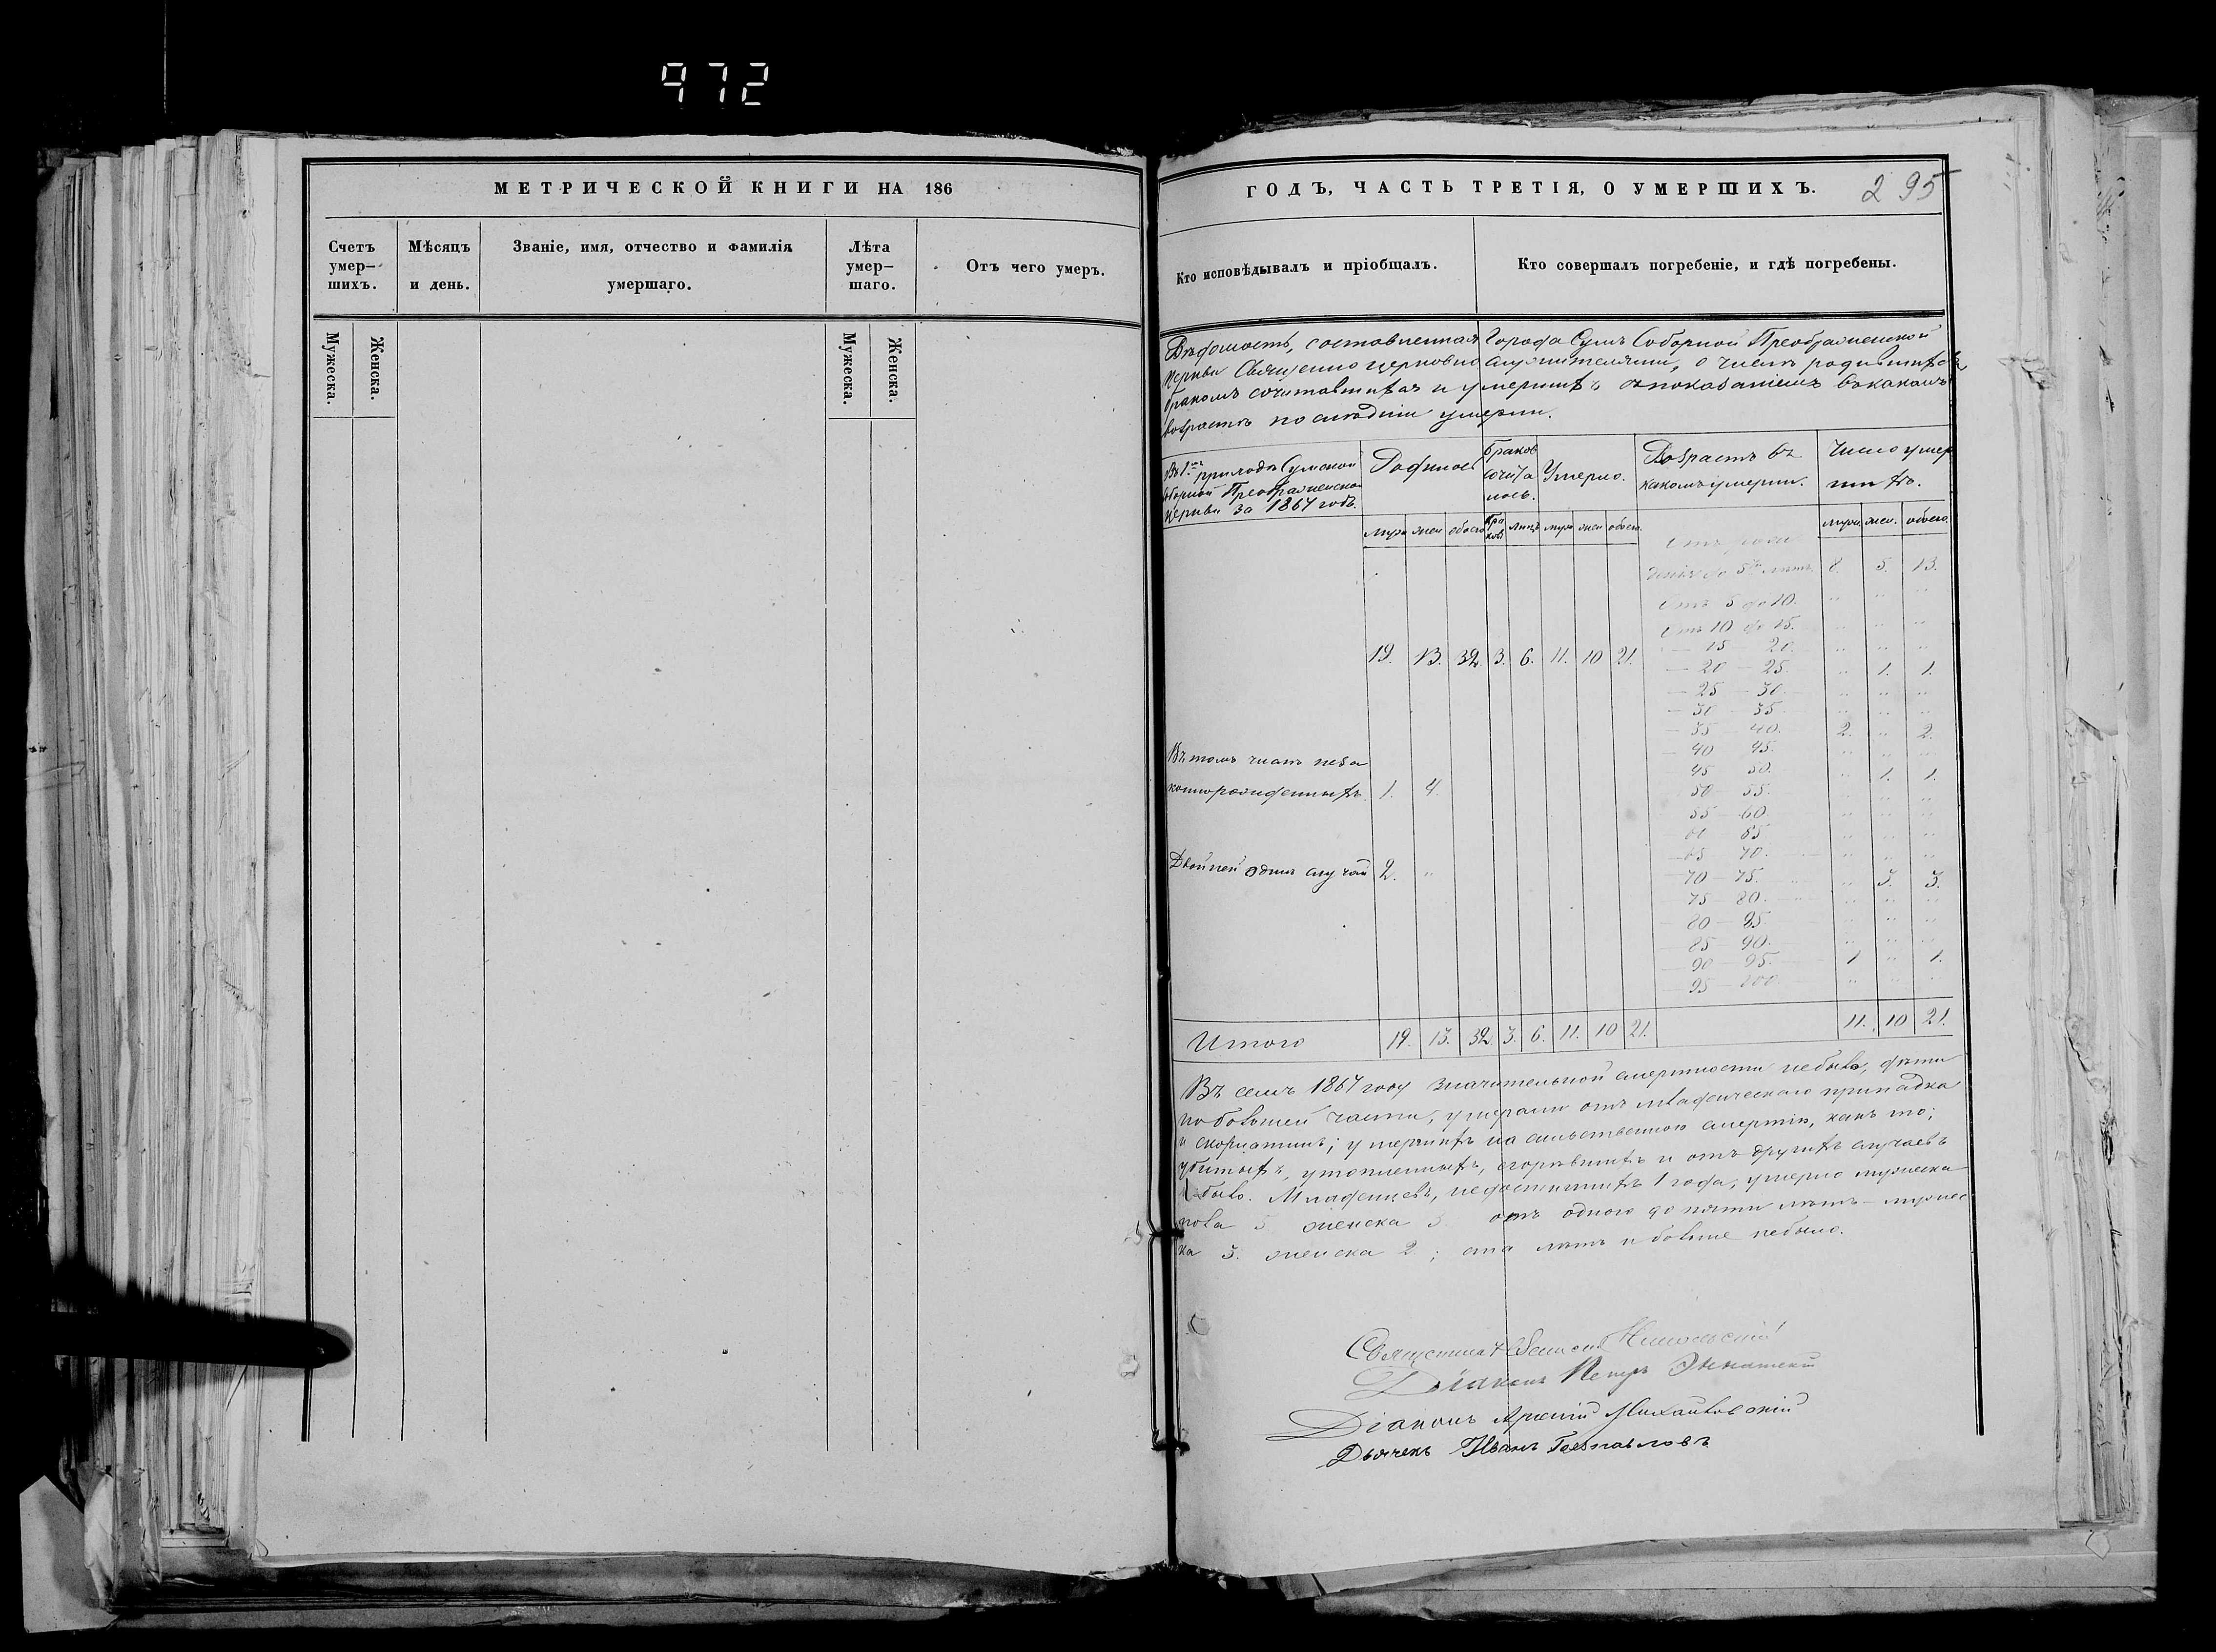 972
МЕТРИЧЕСКОЙ КНИГИ НА 186
Счетъ умер–шихъ.
Мѣсяцъ и день.
Званіе, имя, отчество и фамилія умершаго.
Лѣта умер–шаго.
Отъ чего умеръ.
Мужеска.
Женска.
Мужеска.
Женска.
ГОДЪ, ЧАСТЬ ТРЕТІЯ, О УМЕРШИХЪ.
295
Кто исповѣдывалъ и пріобщалъ.
Кто совершалъ погребеніе, и гдѣ погребены.
Вѣдомость, составленная Города Сумъ Соборной Преображенской
Церкви Священно церковно служителями, о числѣ родившихся
бракомъ сочитавшихся и умершихъ съ показаніемъ въ какомъ
возрастѣ послѣдніи умерли.
Въ 1мъ приходѣ Сумской
Соборной Преображенской
Церкви за 1867 годъ.
Родилось
Браков сочиталось.
Умерло.
Возрастъ въ какомъ умерли.
Число умершихъ.
муж жен обоего браковъ лицъ муж жен обоего
муж. жен. обоего.
Отъ рожденія до 5ти лѣтъ 8. 5. 13.
Отъ 5 до 10. „ „ „
Отъ 10 до 15. „ „ „
— 15 — 20. „ „ „
19. 13. 32. 3. 6. 11. 10 21.
— 20 — 25. „ 1. 1.
— 25 — 30. „ „ „
— 30 — 35 „ „ „
— 35 — 40. 2. „ 2.
— 40 — 45. „ „ „
— 45 — 50. „ 1. 1.
— 50 — 55. „ „ „
— 55 — 60. „ „ „
— 60 — 65 „ „ „
— 65 — 70. „ „ „
— 70 — 75. „ 3. 3.
— 75 — 80. „ „ „
— 80 — 85. „ „ „
— 85 — 90. „ „ „
— 90 — 95. 1 „ 1.
— 95 — 100. „ „ „
Въ томъ числѣ неза
коннорожденныхъ 1. 4.
Двойней одинъ случай 2. „
Итого 19. 13. 32. 3. 6. 11. 10 21. 11. 10 21.
Въ семъ 1867 году значительной смертности небыло, дѣти
по большей части, умерали отъ младенческаго припадка
и скорлатины; умершихъ насильственною смертію, какъ то;
убитыхъ, утопленныхъ, сгорѣвшихъ и отъ другихъ случаевъ
небыло. Младенцевъ, недостигшихъ 1 года, умерло мужеска
пола 5. женска 3 отъ одного до пяти лѣтъ — мужес
ка 3. женска 2; ста лѣтъ и больше небыло.
Священникъ Никольскій
Діаконъ Петръ
Діаконъ Арсеній Михайловскій
Дьячекъ Иванъ